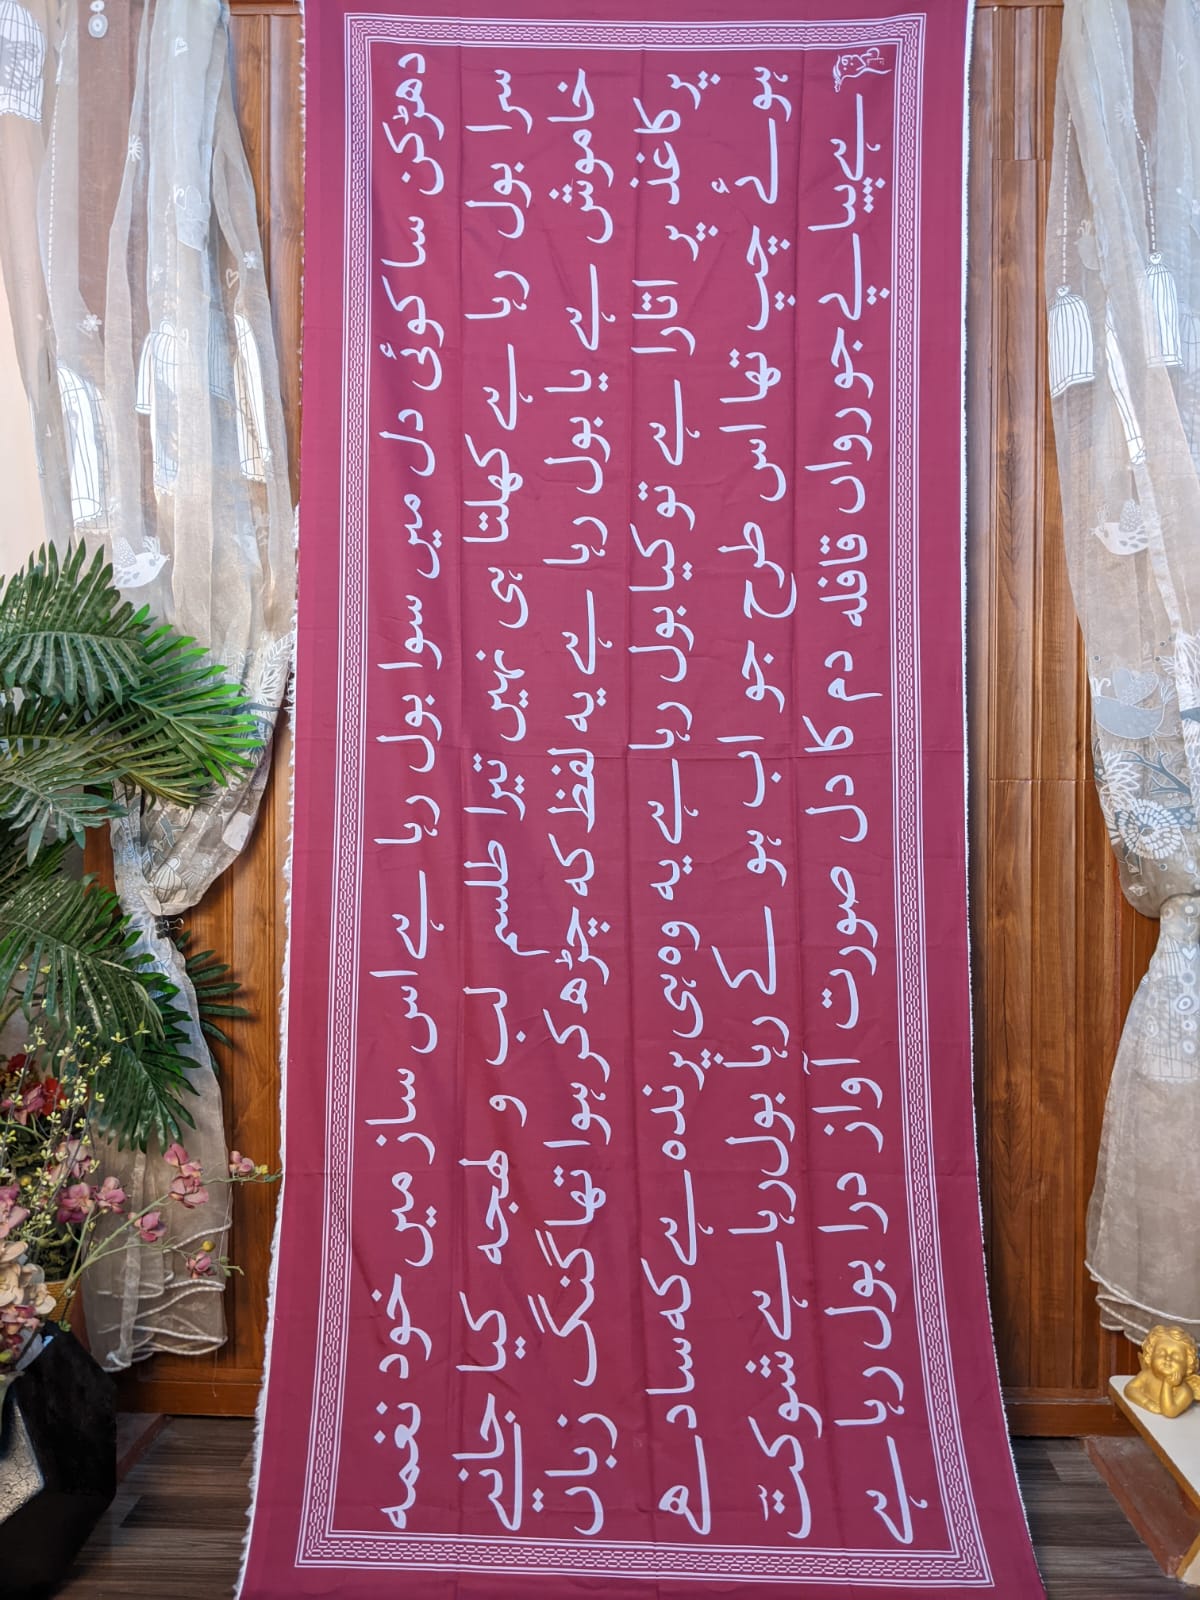 دھڑکن سا کوئی دل میں سوا بول رہا ہے اس ساز میں خود نغمہ
سرا بول رہا ہے کھلتا ہی نہیں تیرا طلسم لب و لہجہ کیا جانیے
خاموش ہے یا بول رہا ہے یہ لفظ کہ چڑھ کر ہوا تھا گنگ زباں
پر کاغذ پر اتارا ہے تو کیا بول رہا ہے یہ وہ ہی پرندہ ہے کہ سادھے
ہوئے چپ تھا اس طرح جو اب ہو کے رہا بول رہا ہے شوکتؔ
ہے پیاپے جو رواں قافلہ دم کا دل صورت آواز درا بول رہا ہے